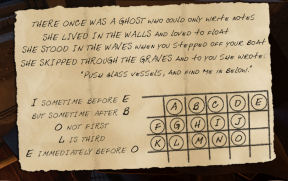 THERE ONCE WAS A GHOST who could only write notes
SHE LIVED IN THE WALLS and loved to float
SHE STOOD IN THE WAVES when you stepped off your boat
SHE SKIPPED THROUGH THE GRAVES and to you she wrote:
"PUSH GLASS VESSELS, AND FIND ME IN BELOW."
I SOMETIME BEFORE E
BUT SOMETIME AFTER B
O NOT FIRST
L IS THIRD
E IMMEDIATELY BEFORE O
A B C D E
F G H I J
K L M N O